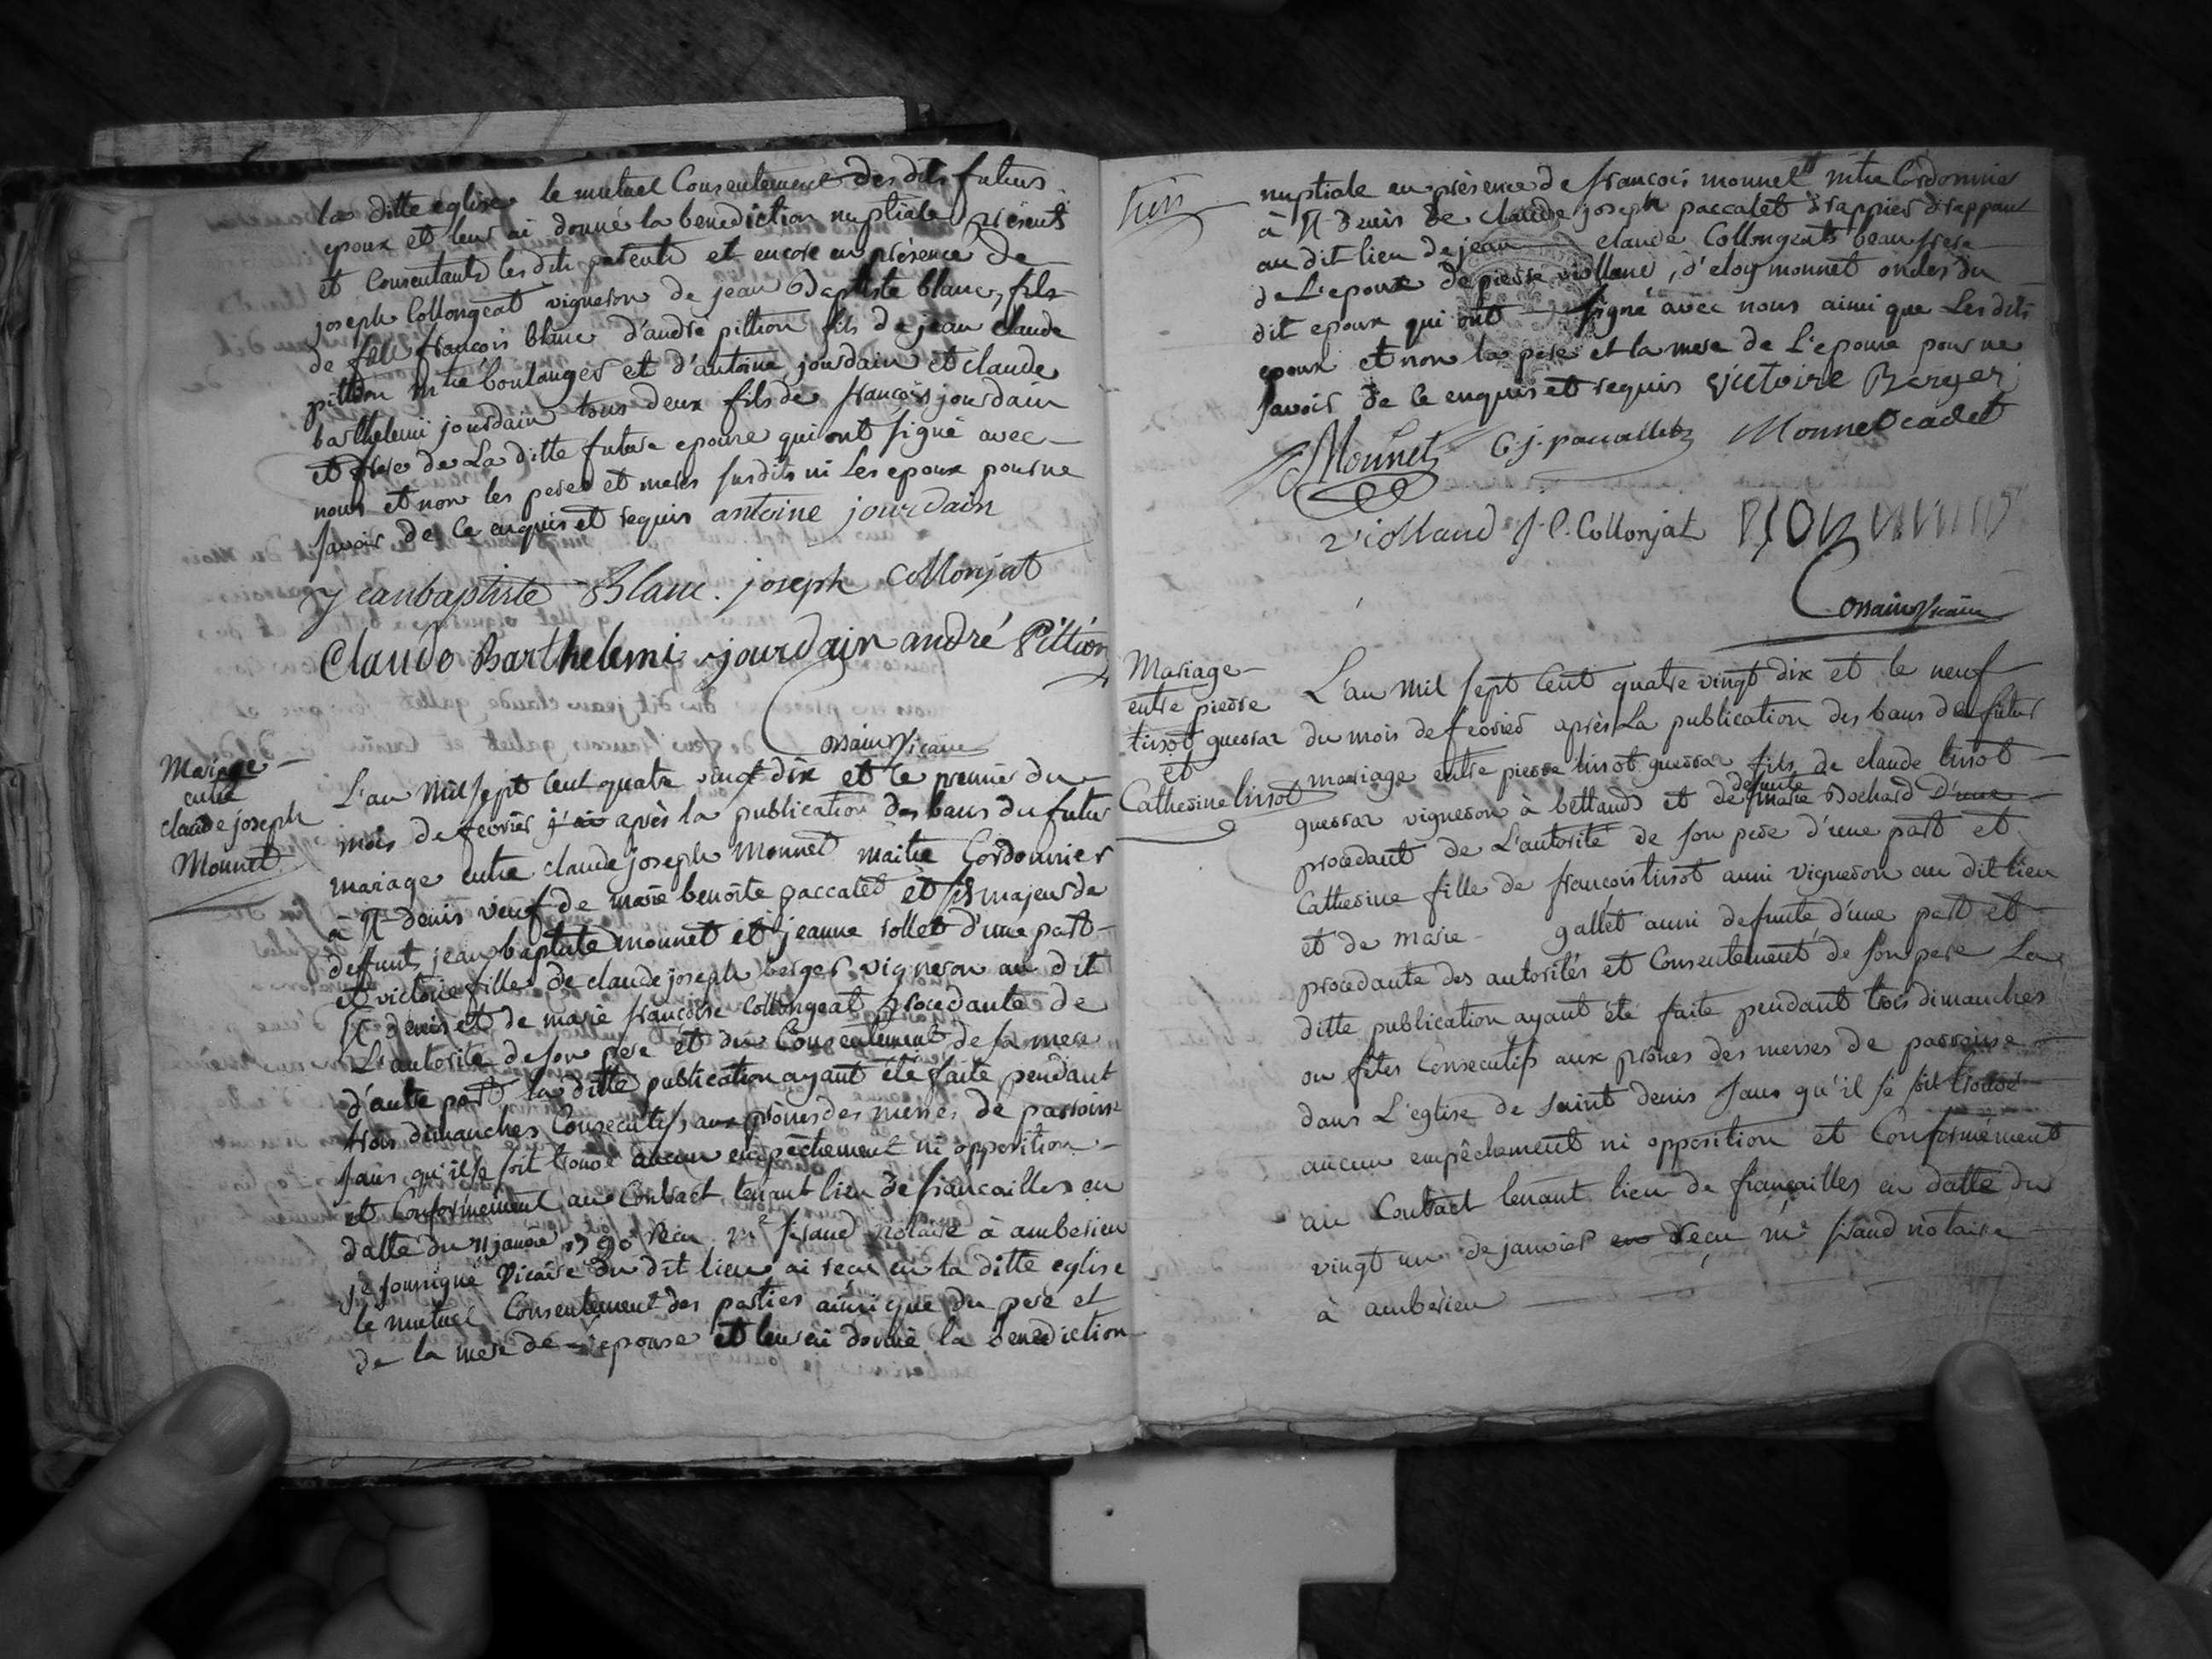 la ditte eglise le mutuel Consentement des dits futurs
epoux et leur ai donné la benediction nuptiale présents
et Consentants les dits parents et encore en présence de
joseph Collongeat vigneron de jean Baptiste blanc, fils
de feu françois blanc d'andré pittion fils de jean claude
pittion mtre boulanger et d'antoine jourdain et claude
barthelemi jourdain tous deux fils de françois jourdain
et frere de La ditte future epouse qui ont signé avec
nous et non les peres et meres susdits ni Les epoux pour ne
savoir de ce enquis et requis antoine jourdain
jeanbaptiste Blanc. joseph Collonjat
Claude Barthelemi jourdain andré Pittion
vicaire
Mariage
entre
claude joseph
Monnet
L'an Mil sept Cent quatre vingt dix et le premier du
mois de fevrier j'ai après la publication des bans du futur
mariage entre claude joseph Monnet maitre Cordonnier
à St denis veuf de marie benoite paccalet et fils majeur de
deffunt jean baptiste monnet et jeanne rollet d'une part
et victoire fille de claude joseph berger vigneron au dit
St denis et de marie françoise Collongeat procedante de
L'autorité de son pere et du Consentement de sa mere
d'autre part la ditte publication ayant été faite pendant
trois dimanches Consecutifs aux prônes des messes de parroisse
sans qu'il se soit trouvé aucun empêchement ni opposition
et Conformément au Contract tenant lieu de fiancailles en
datte du 11 janvier 1790 recu me sirand notaire à amberieu
je soussigné Vicaire du dit lieu ai recu en la ditte eglise
le mutuel Consentement des parties ainsi que du pere et
de la mere de l'epouse et leur ai donné la benediction
nuptiale en présence de françois monnet mtre Cordonnier
à St denis de claude joseph paccalet drappier drappant
au dit lieu de jean claude Collongeat beau frere
de L'epoux de pierre violland, d'eloy monnet oncles du
dit epoux qui ont signé avec nous ainsi que Les dits
epoux et non la pere et la mere de L'epouse pour ne
savoir de ce enquis et requis victoire Berger
Monnet C. j. paccallet Monnet cadet
violland J. C. Collonjat
vicaire
Mariage
entre pierre
tissot guerrar
et
Catherine tissot
L'an Mil sept Cent quatre vingt dix et le neuf
du mois de fevrier après La publication des bans de futur
mariage entre pierre tissot guerrar fils de claude tissot
guerrar vigneron à bettands et de defunte marie Bochard d'une
procedant de L'autorité de son pere d'une part et
Catherine fille de françois tissot aussi vigneron au dit lieu
et de marie gallet aussi defunte d'une part et
procedante des autorités et Consentement de son pere La
ditte publication ayant été faite pendant trois dimanches
ou fêtes Consecutifs aux prônes des messes de parroisse
dans L'eglise de saint denis sans qu'il se soit trouvé
aucun empêchement ni opposition et Conformément
au Contract tenant lieu de fiançailles en datte du
vingt un de janvier en reçu me sirand notaire
à amberieu